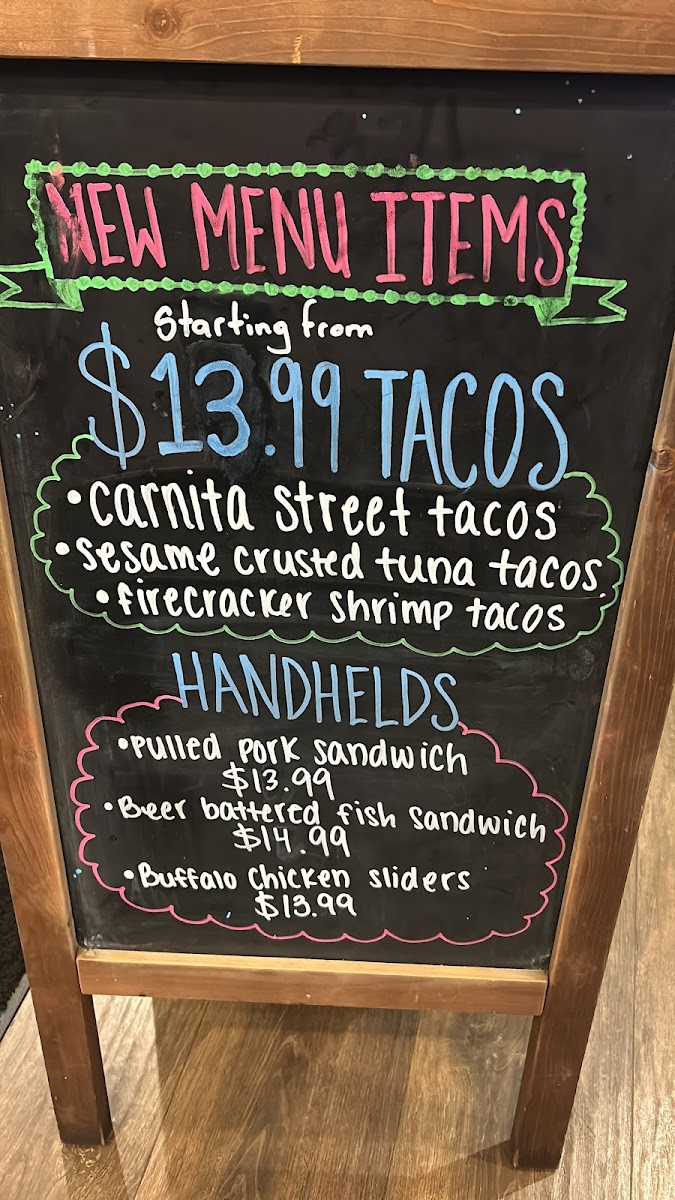 NEW MENU ITEMS
Starting from
$13.99 TACOS
• carnita street tacos
• sesame crusted tuna tacos
• firecracker shrimp tacos
HANDHELDS
• Pulled pork sandwich
$13.99
• Beer battered fish sandwich
$14.99
• Buffalo Chicken sliders
$13.99